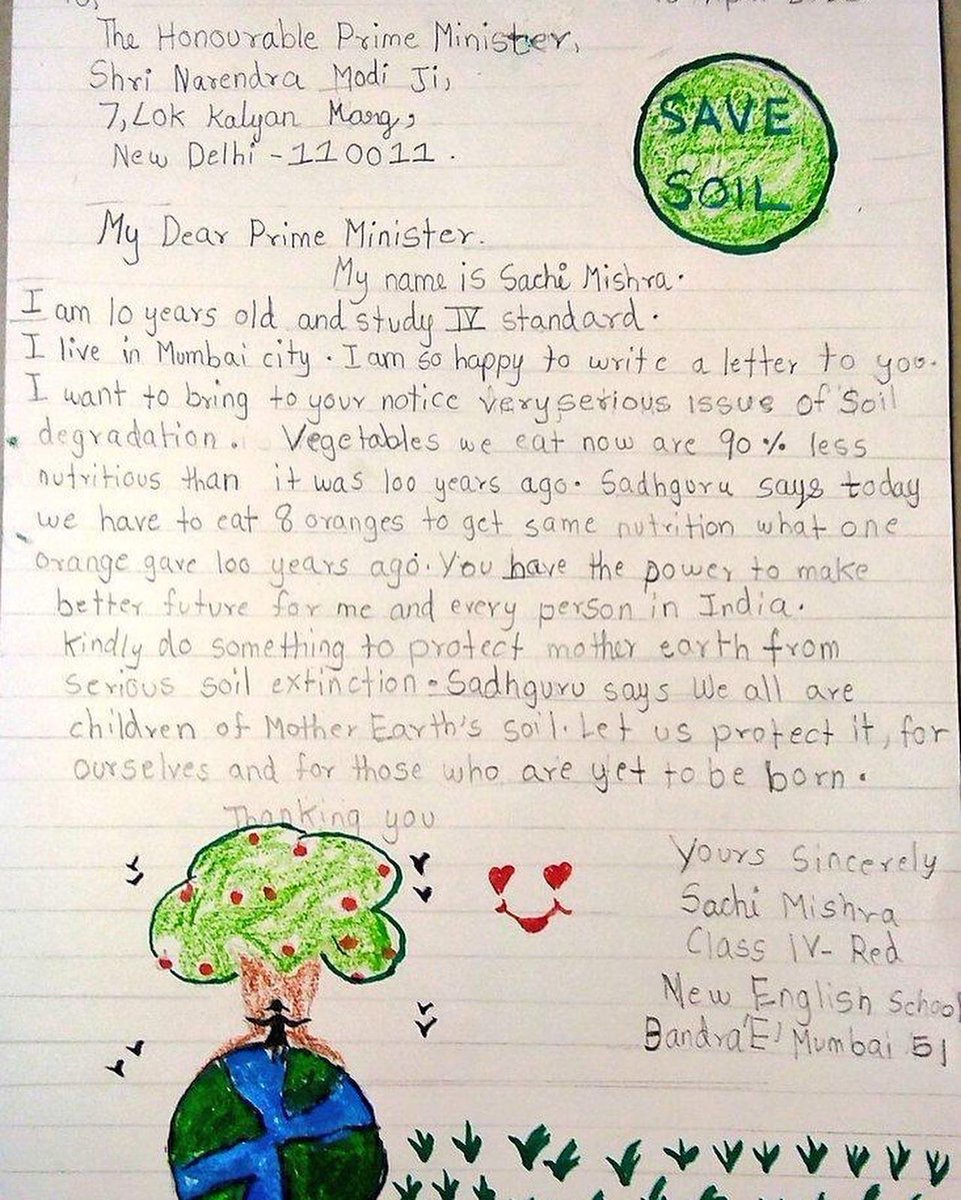 The Honourable Prime Minister,
Shri Narendra Modi Ji,
7, Lok Kalyan Marg,
New Delhi - 110011.
SAVE
SOIL
My Dear Prime Minister.
My name is Sachi Mishra.
I am 10 years old and study IV standard.
I live in Mumbai city. I am so happy to write a letter to you.
I want to bring to your notice very serious issue of Soil
degradation. Vegetables we eat now are 90% less
nutritious than it was 100 years ago. Sadhguru says today
we have to eat 8 oranges to get same nutrition what one
orange gave 100 years ago. You have the power to make
better future for me and every person in India.
Kindly do something to protect mother earth from
serious soil extinction - Sadhguru says We all are
children of Mother Earth's soil. Let us protect it, for
ourselves and for those who are yet to be born.
Thanking you
Yours Sincerely
Sachi Mishra
Class IV- Red
New English School
Bandra 'E' Mumbai 51